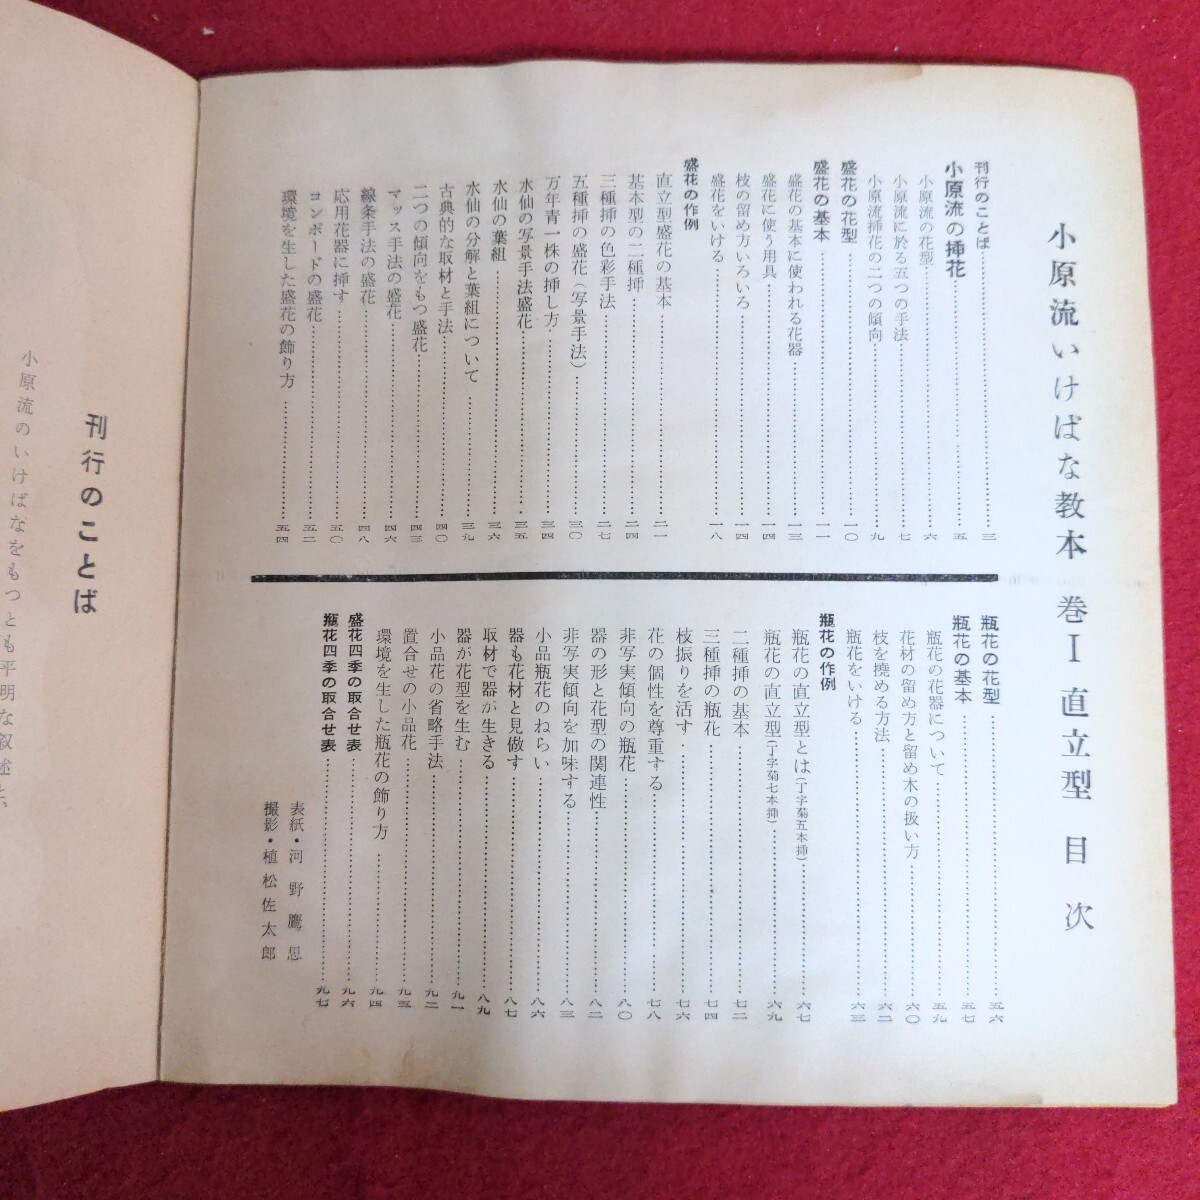 小原流いけばな教本 巻Ⅰ 直立型 目次
刊行のことば…………三
小原流の挿花…………五
小原流の花型…………六
小原流に於る五つの手法…………七
小原流挿花の二つの傾向…………九
盛花の花型…………一〇
盛花の基本…………一一
盛花の基本に使われる花器…………一三
盛花に使う用具…………一四
枝の留め方いろいろ…………一四
盛花をいける…………一八
盛花の作例
直立型盛花の基本…………二一
基本型の二種挿…………二四
三種挿の色彩手法…………二七
五種挿の盛花（写景手法）…………三〇
万年青一株の挿し方…………三四
水仙の写景手法盛花…………三五
水仙の葉組…………三六
水仙の分解と葉組について…………三九
古典的な取材と手法…………四〇
二つの傾向をもつ盛花…………四三
マッス手法の盛花…………四六
線条手法の盛花…………四八
応用花器に挿す…………五〇
コンポードの盛花…………五二
環境を生した盛花の飾り方…………五四
瓶花の花型…………五六
瓶花の基本…………五七
瓶花の花器について…………五九
花材の留め方と留め木の扱い方…………六〇
枝を撓める方法…………六二
瓶花をいける…………六三
瓶花の作例
瓶花の直立型とは（丁字菊五本挿）…………六七
瓶花の直立型（丁字菊七本挿）…………六九
二種挿の基本…………七二
三種挿の瓶花…………七四
枝振りを活す…………七六
花の個性を尊重する…………七八
非写実傾向の瓶花…………八〇
器の形と花型の関連性…………八二
非写実傾向を加味する…………八三
小品瓶花のねらい…………八六
器も花材と見做す…………八七
取材で器が生きる…………八九
器が花型を生む…………九一
小品花の省略手法…………九二
置合せの小品花…………九三
環境を生した瓶花の飾り方…………九四
盛花四季の取合せ表…………九六
瓶花四季の取合せ表…………九七
表紙・河野鷹思
撮影・植松佐太郎
刊行のことば
小原流のいけばなをもつとも平明な叙述と、